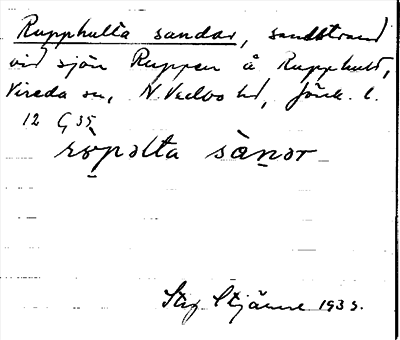 Rupphulta sandar, sandstrand
vid sjön Ruppen å Rupphult,
Vireda sn, N. Vedbo hd, Jönk. l.
12 G 35
röpəlta sànər
Stig Stjärne 1935.